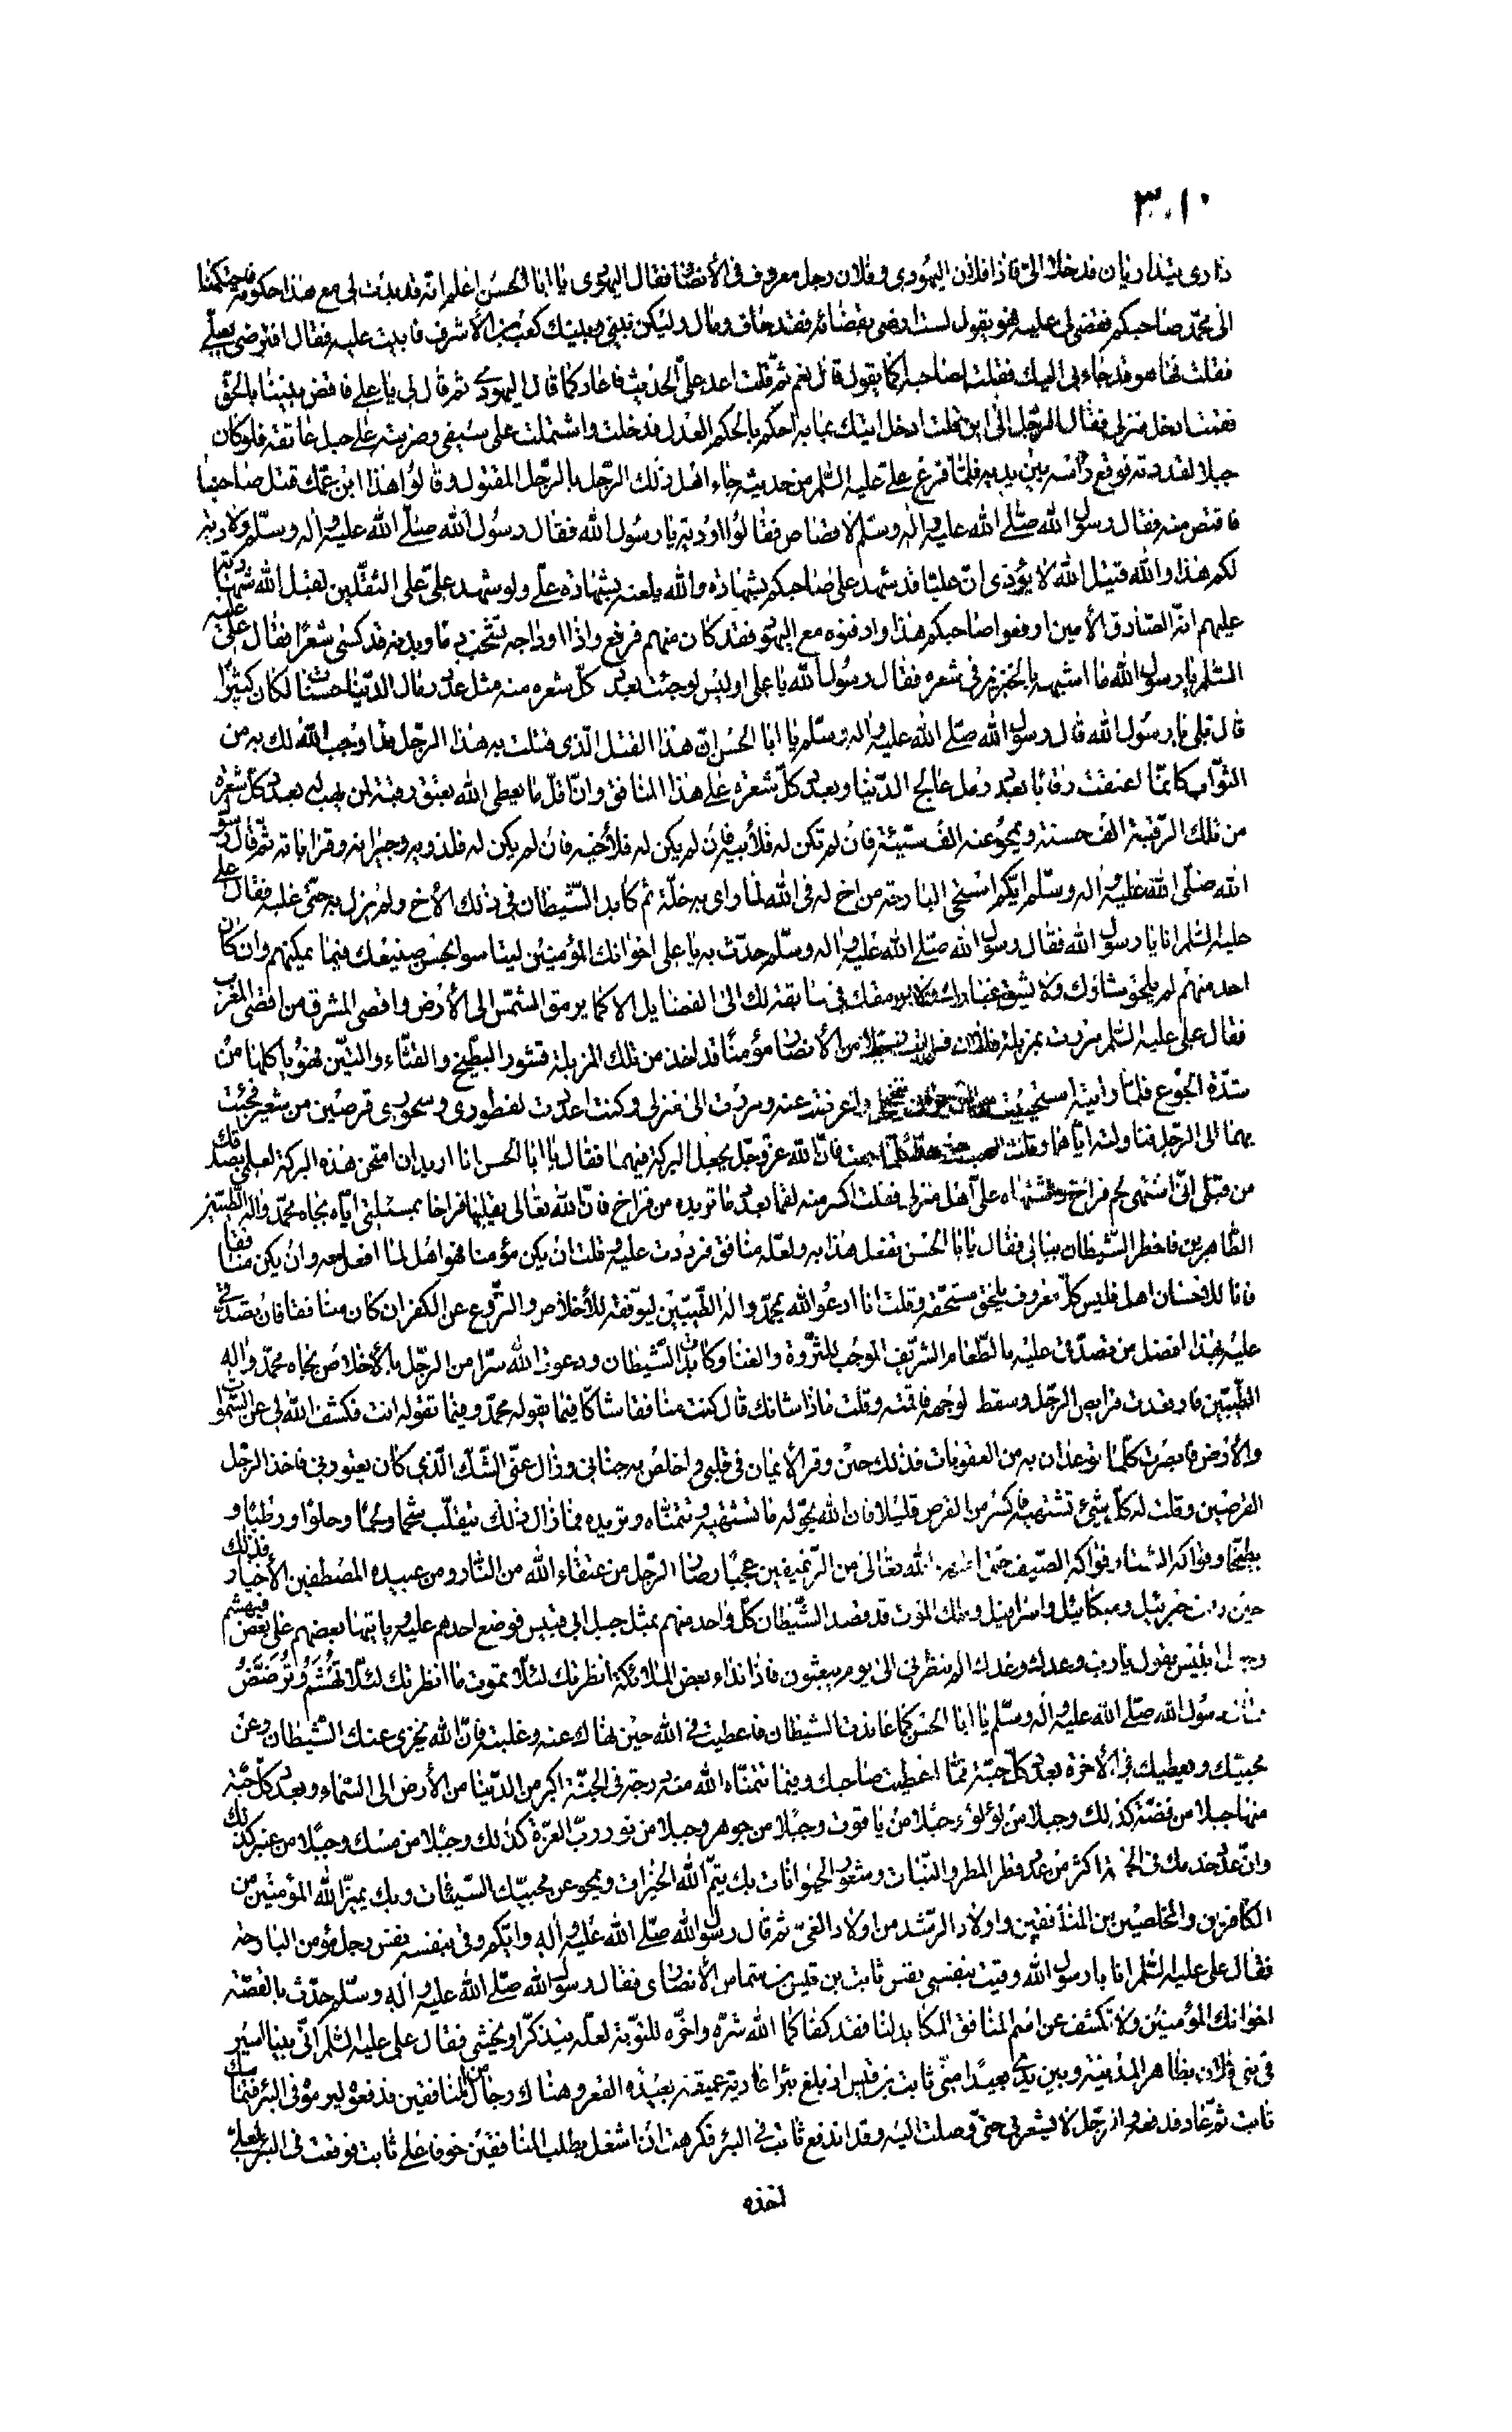 ٣٠١٠
داری یتداریان فدخلا الیّ فاذا فلان الیهودی وفلان رجل معروف فی الأنصار فقال الیهودی یا ابا الحسن اعلم انّه قد بدت لی مع هذا حکومة فاحتکمنا
الی محمّد صاحبکم فقضی لی علیه فهو یقول لست ارضی بقضائه فقد حاف ومال ولیکن بینی وبینک کعب بن الأشرف فابیت علیه فقال افترضی بعلیّ
فقلت نعم فها هو قد جاء بی الیک فقلت لصاحبه اکما یقول قال نعم ثمّ قلت اعد علیّ الحدیث فاعاد کما قال الیهودی ثم قال لی یا علی فاقض بیننا بالحق
فقمت ادخل منزلی فقال الرّجل الی این قلت ادخل اتیک بما به احکم بالحکم العدل فدخلت واشتملت علی سیفی وضربته علی حبل عاتقه فلو کان
جبلا لقددته فوقع رأسه بین یدیه فلمّا فرغ علیّ علیه السّلم من حدیثه جاء اهل ذلک الرّجل بالرّجل المقتول وقالوا هذا ابن عمّک قتل صاحبنا
فاقتص منه فقال رسول الله صلّی الله علیه واله وسلّم لا قصاص فقالوا اودیة یا رسول الله فقال رسول الله صلّی الله علیه واله وسلّم ولا دیة
لکم هذا والله قتیل الله لا یؤدی انّ علیّا قد شهد علی صاحبکم بشهادة والله یلعنه بشهادة علیّ ولو شهد علیّ علی الثقلین لقبل الله شهادته
علیهم انّه الصّادق الأمین ارفعوا صاحبکم هذا وادفنوه مع الیهود فقد کان منهم فرفع واذا اوداجه تشخب دما وبدنه قد کسی شعرًا فقال علیّ علیه
السّلم یا رسول الله ما اشبهه بالخنزیر فی شعره فقال رسول الله یا علی اولیس لو حسبت بعدد کلّ شعره منه مثل عدد رمال الدّنیا حسنات لکان کثیرًا
قال بلی یا رسول الله قال رسول الله صلّی الله علیه واله وسلّم یا ابا الحسن انّ هذا القتل الّذی قتلت به هذا الرجل قد اوجب الله لک به من
الثّواب کانّما اعتقت رقابًا بعدد رمل عالج الدّنیا وبعدد کلّ شعرة علی هذا المنافق وانّ اقلّ ما یعطی الله بعتق رقبة لمن یهب له بعدد کلّ شعرة
من تلک الرّقبة الف حسنة ویمحو عنه الف سیّئة فان لم تکن له فلأبیه فان لم یکن لأبیه فلأخیه فان لم یکن له فلذویه وجیرانه وقراباته ثمّ قال رسول
الله صلّی الله علیه واله وسلّم ایّکم استحیی البارحة من اخ له فی الله لما رای به خلّة ثم کاید الشّیطان فی ذلک الأخ ولم یزل به حتّی غلبه فقال علی
علیه السّلم انا یا رسول الله فقال رسول الله صلّی الله علیه واله وسلّم حدّث به یا علی اخوانک المؤمنین لیتاسوا بحسن صنیعک فیما یمکنهم وان کان
احد منهم لم یلحق شاوک ولا یشق غبارک ولا یرمقک فی سابقة لک الی الفضایل الا کما یرمق الشمس الی الأرض واقصی المشرق من اقصی المغرب
فقال علی علیه السّلم مررت بمزبلة بنی فلان من الأنصار مؤمنًا قد اخذ من تلک المزبلة قشور البطّیخ والقثّاء والتّین فهو یاکلها من
شدّة الجوع فلمّا رایته استحییت واعرضت عنه ومررت الی منزلی وکنت اعددت لفطوری وسحوری قرصین من شعیر فجئت
بهما الی الرّجل فناولته ایّاهما وقلت فانّ الله عزّ وجلّ یجعل البرکة فیهما فقال یا ابا الحسن انا ارید ان امتحن هذه البرکة لعلمی بصدقک
من قبلی انّی اشتهی لحم فراخ اشتهاه علیّ اهل منزلی فقلت اکسر منه لقما بعدد ما تریده من فراخ فانّ الله تعالی یقلبها فراخا بمسئلتی ایّاه بجاه محمّد واله الطّیّبین
الطّاهرین فاخطر الشّیطان ببالی فقال یا ابا الحسن تفعل هذا به ولعلّه منافق فرددت علیه وقلت ان یکن مؤمنا فهو اهل لما افعل معه وان یکن منافقا
فانا للاحسان اهل فلیس کلّ معروف یلحق مستحقّه وقلت انا ادعو الله بمحمّد واله الطّیّبین لیوفّقه للأخلاص والنّزوع عن الکفر ان کان منافقا فان تصدّقی
علیه بهذا افضل من تصدّقی علیه بالطّعام الشّریف الموجب للثّروة والغنا وکایدت الشّیطان ودعوت الله سرّا من الرّجل بالأخلاص بجاه محمّد واله
الطّیّبین فارتعدت فرایص الرّجل وسقط لوجهه فاقمته وقلت ماذا شانک قال کنت منافقا شاکّا فیما یقوله محمّد وفیما تقوله انت فکشف الله لی عن السّموات
والأرض فابصرت کلّما توعدان به من العقوبات فذلک حین وقر الأیمان فی قلبی واخلص به جنانی وزال عنّی الشّک الّذی کان یعتورنی فاخذ الرّجل
القرصین وقلت له کلّ شیئ تشتهیه فاکسر من القرص قلیلا فان الله یحوّله ما تشتهیه وتتمنّاه وتریده فما زال ذلک یتقلّب شحما ولحمًا وحلوا ورطبًا و
بطّیخا وفواکه الشتاء وفواکه الصّیف حتّی اظهر الله تعالی من الرّغیفین عجبًا وصار الرّجل من عتقاء الله من النّار ومن عبیده المصطفین الأخیار فذلک
حین رایت جبرئیل ومیکائیل واسرافیل وملک الموت قد قصد الشّیطان کلّ واحد منهم بمثل جبل ابی قبیس فوضع احدهم علیه ویاتیها بعضهم علی بعض فیهشّم
وجعل ابلیس یقول یا رب وعدک وعدک الم تنظرنی الی یوم یبعثون فاذا نداء بعض الملائکة انظرتک لئلّا تموت ما انظرتک لئلّا تهشّم وترضّض
فقال رسول الله صلّی الله علیه واله وسلّم یا ابا الحسن کما عاندت الشیطان فاعطیت فی الله حین نهاک عنه وغلبته فانّ الله یخزی عنک الشّیطان وعن
محبیّک ویعطیک فی الأخرة بعدد کلّ حبّة ممّا اعطیت صاحبک وفیما تتمنّاه الله منه درجة فی الجنّة اکبر من الدّنیا من الأرض الی السّماء وبعدد کلّ حبّة
منها جبلا من فضّة کذلک وجبلا من لؤلوء وجبلا من یاقوت وجبلا من جوهر وجبلا من نور ربّ العزّة کذلک وجبلا من مسک وجبلا من عنبر کذلک
وانّ عدد خدمک فی الجنّة اکثر من عدد قطر المطر والنّبات وشعور الحیوانات بک یتمّ الله الخیرات ویمحو عن محبیّک السّیّئات وبک یمیّز الله المؤمنین من
الکافرین والمخلصین من المنافقین واولاد الرّشد من اولاد الغیّ ثم قال رسول الله صلّی الله علیه واله وایّکم وقی بنفسه نفس رجل مؤمن البارحة
فقال علی علیه السّلم انا یا رسول الله وقیت بنفسی نفس ثابت بن قیس بن شماس الأنصاری فقال رسول الله صلّی الله علیه واله وسلّم حدّث بالقصّة
اخوانک المؤمنین ولا تکشف عن اسم المنافق المکاید لنا فقد کفاکما الله شرّه واخّره للتوبة لعلّه یتذکّر او یخشی فقال علی علیه السّلم انّی بینا اسیر
فی بنی فلان بظاهر المدینة وبین یدیّ بعیدًا منّی ثابت بن قیس اذ بلغ بئرا عادیة عمیقة بعیدة القعر وهناک رجال من المنافقین فدفعوه لیرموه فی البئر فتماسک
ثابت ثمّ عاد فدفعه والرّجل لا یشعر بی حتی وصلت الیه وقد اندفع ثابت فی البئر فکرهت ان اشغل بطلب المنافقین خوفا علی ثابت فوقعت فی البئر لعلّی
اخذه